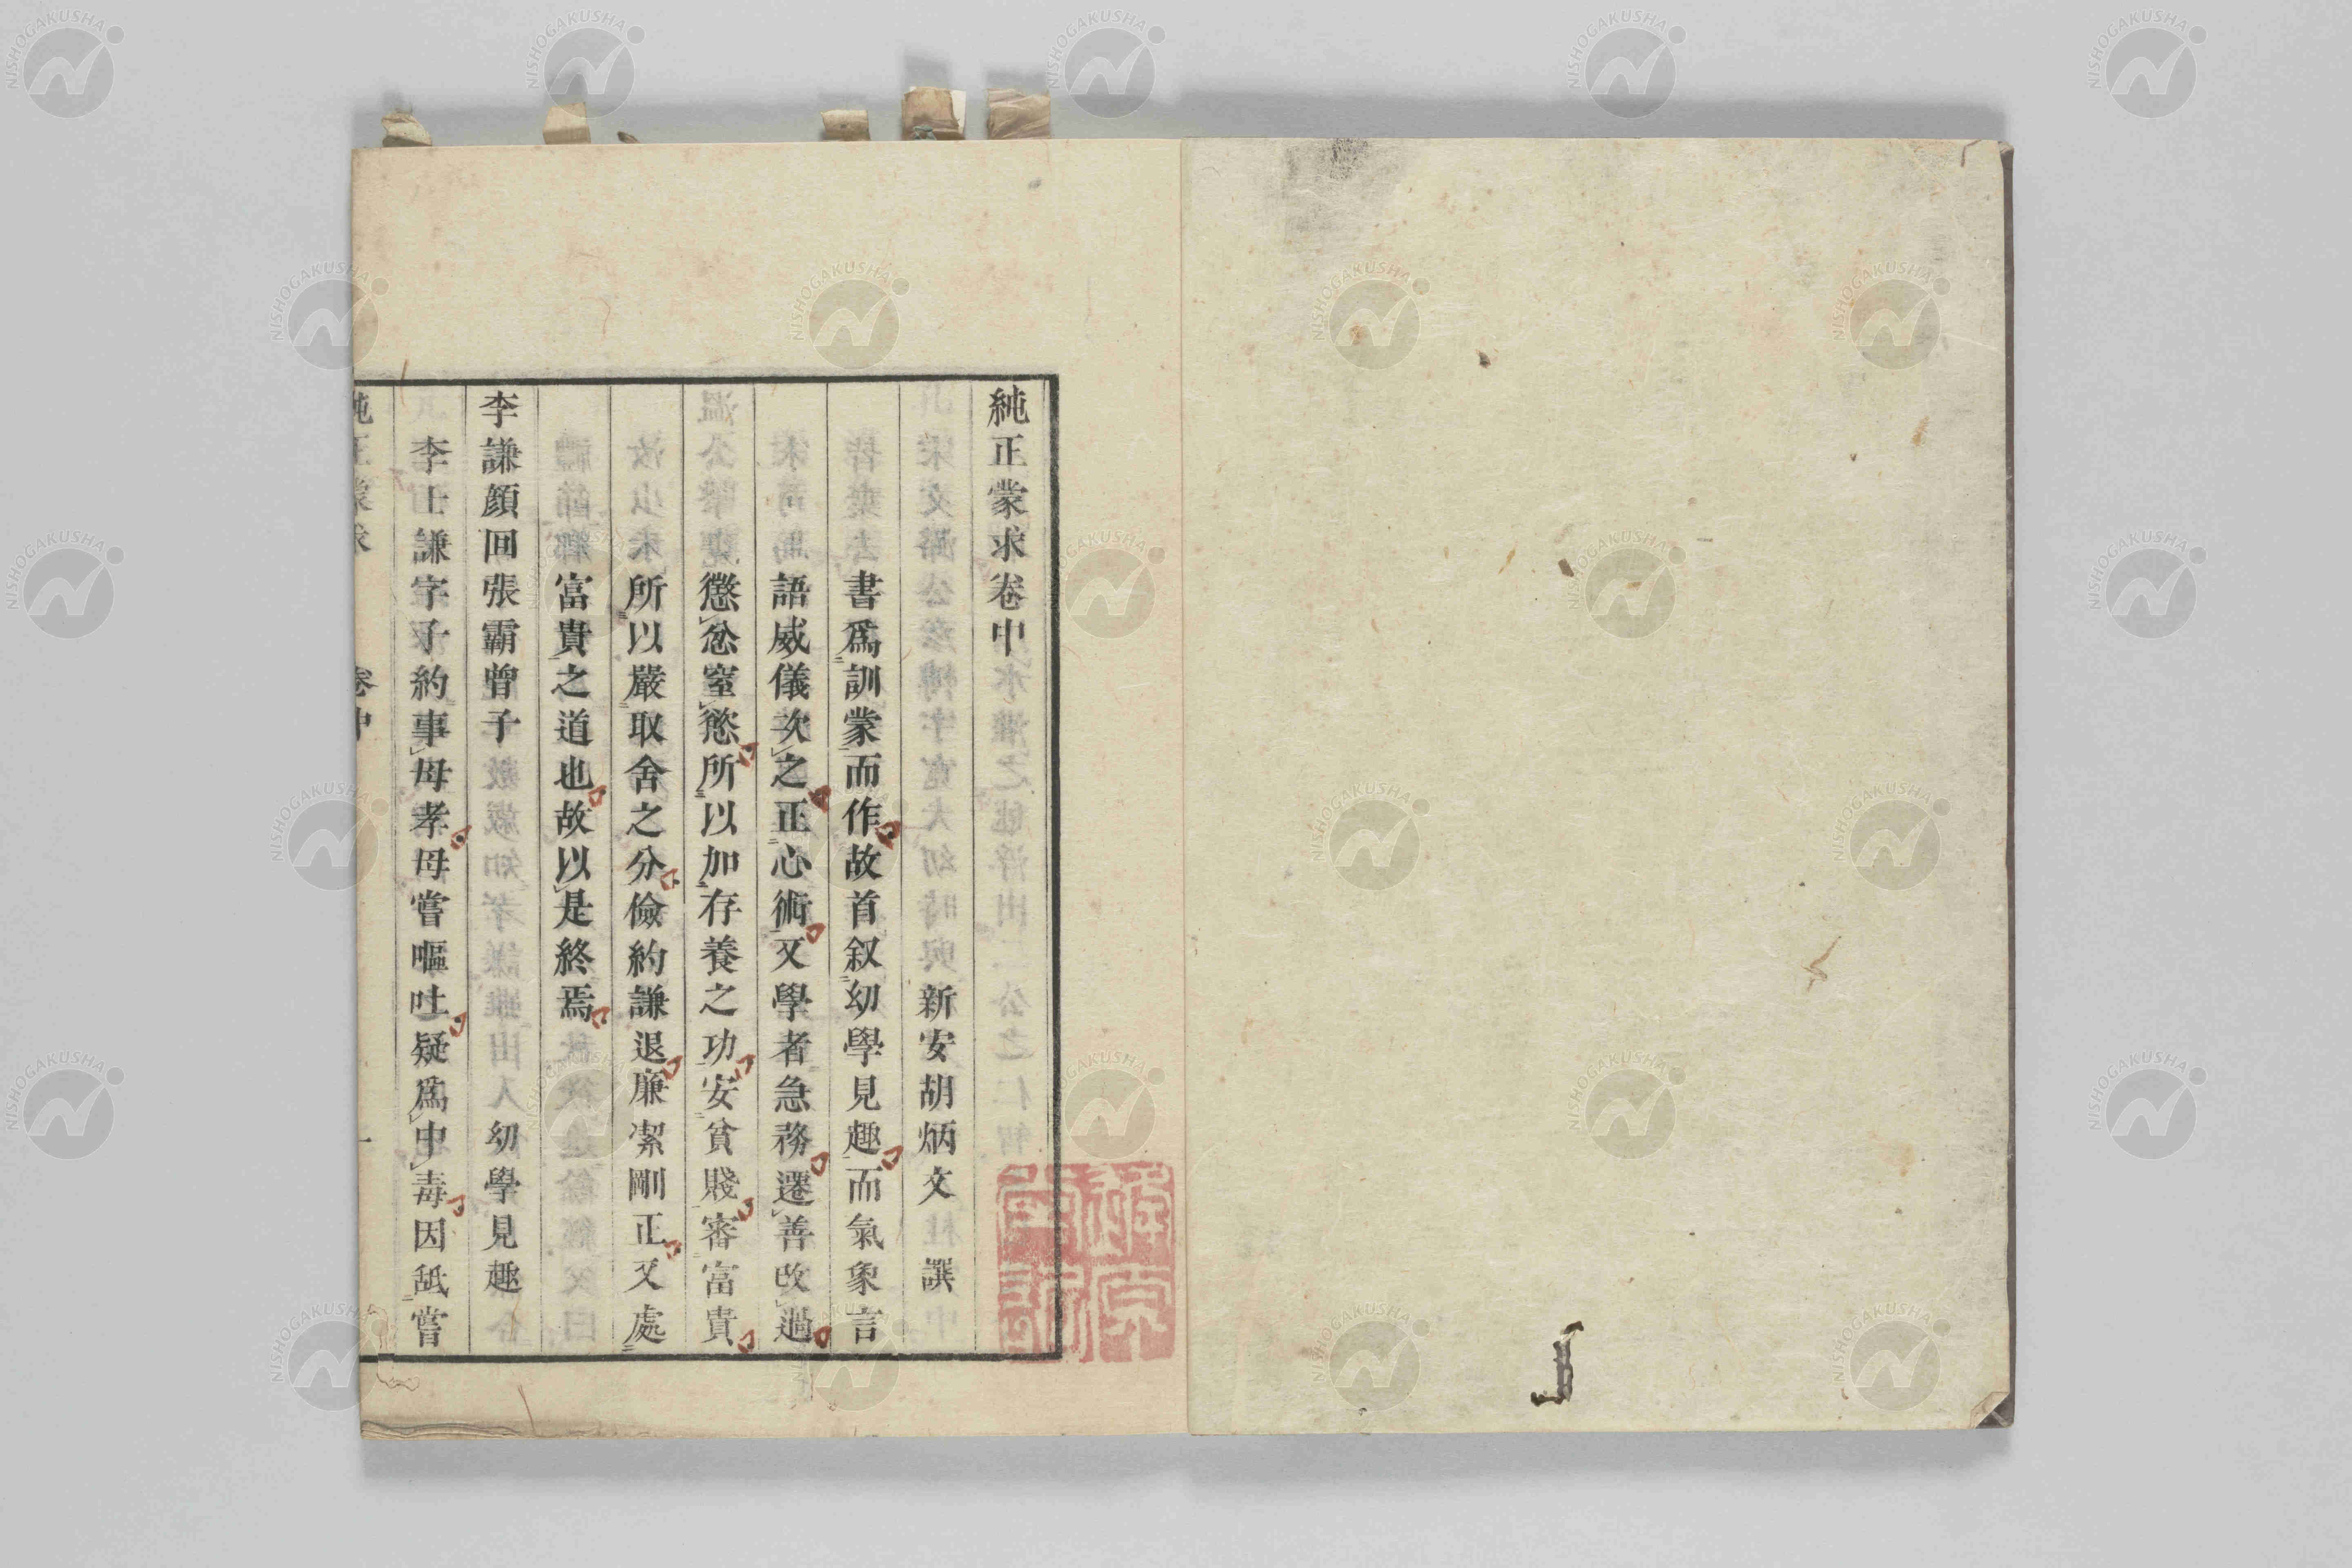 純正蒙求卷中
新安胡炳文 譔
書爲訓蒙而作故首叙幼學見趣而氣象言
語威儀次之正心術又學者急務遷善改過
懲忿窒慾所以加存養之功安貧賤審富貴
所以嚴取舍之分儉約謙退廉潔剛正又處
富貴之道也故以是終焉
李謙顔回張霸曾子 幼學見趣
李士謙字子約事母孝母嘗嘔吐疑爲中毒因舐嘗
純正蒙求 卷中 一
NISHOGAKUSHA